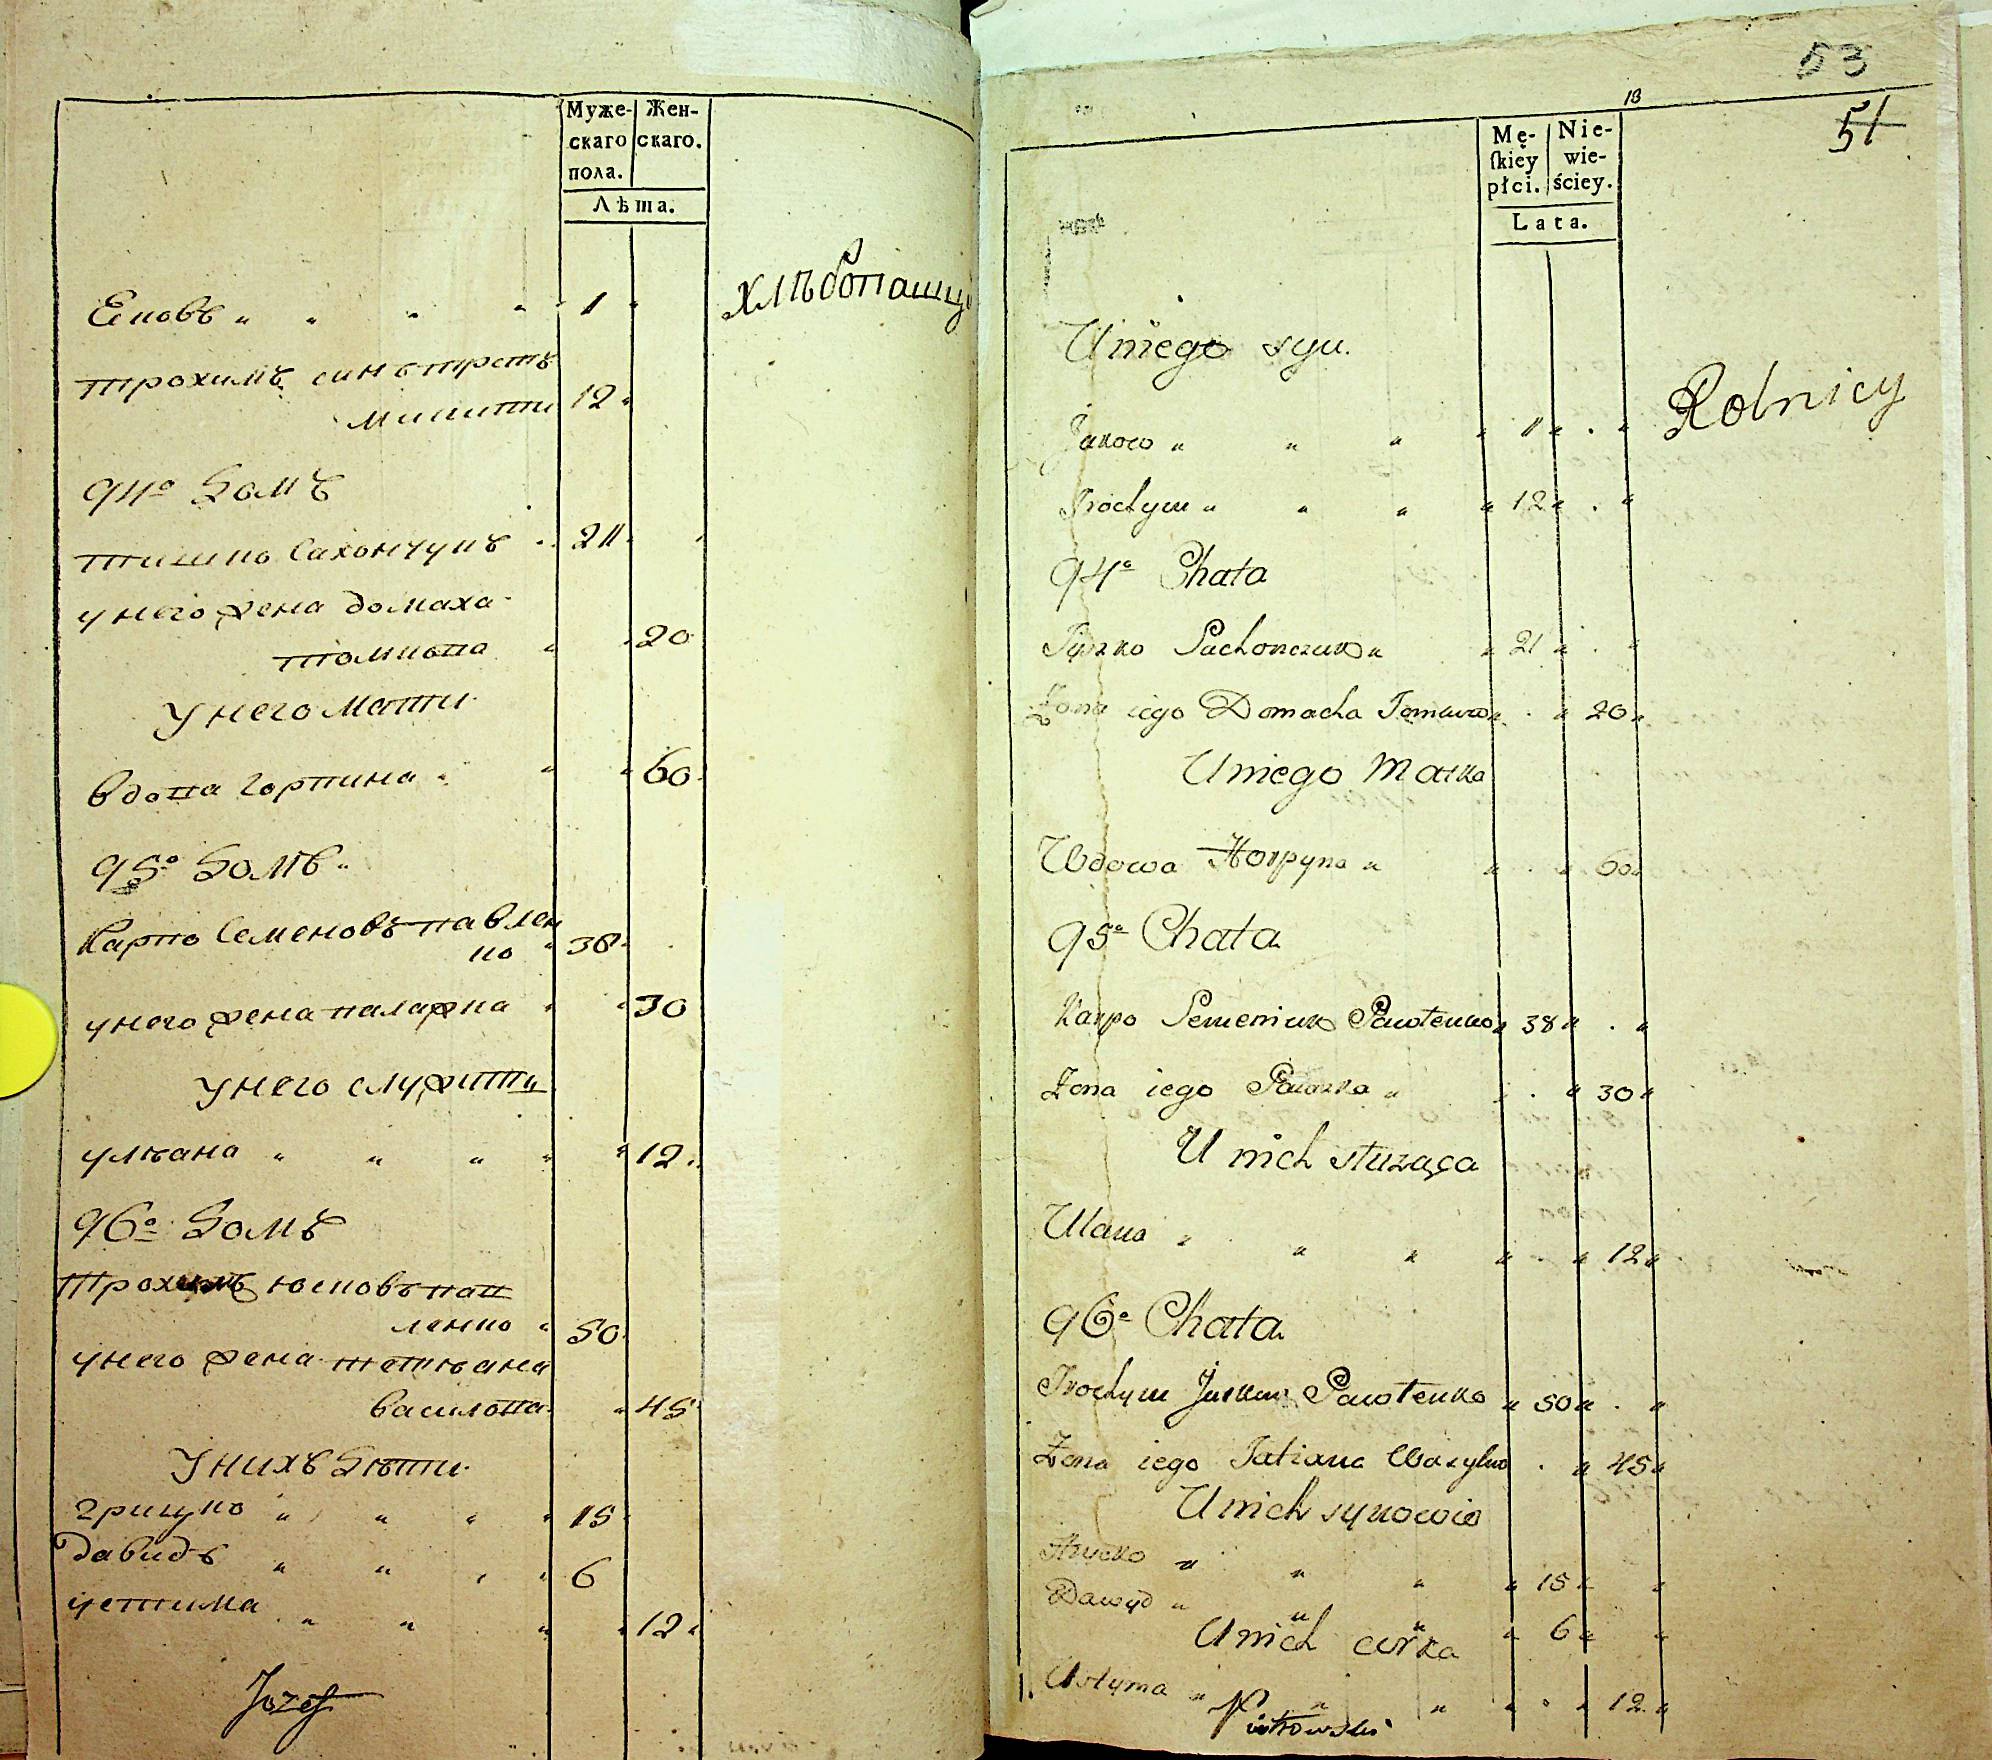 Муже-
скаго
пола.
Жен-
скаго.
Лѣта.
хлѣбопашцы
Еновъ „ „ „ „ 1 „
Трохимъ синъ треть
микитти 12 „
94º Домъ
Тишко Сахончукъ „ 21 „
у него жена домаха
томкова „ „ 20
У него мати
вдова горпина „ „ „ 60
95º Домъ
Карпо Семеновъ павлен
ко „ 38 „
у него жена палажка „ „ 30
У него служити
улѣана „ „ „ „ „ 12 „
96º Домъ
Трохимъ юсковъ пав
ленко „ 50
у него жена тетѣана
василова „ 45
У нихъ дѣти
грицко „ „ „ „ 15
давидъ „ „ „ „ 6
устима „ „ „ „ 12 „
Jozef
53
51
18
Mę-
ſkiey
płci.
Nie-
wie-
ściey.
Lata.
Rolnicy
U niego syn
Jakow „ „ „ „ 1 „ . „
Trochym „ „ „ „ 12 „ . „
94º Chata
Tyszko Sachonczuk „ „ 21 „ . „
Żona iego Domacha Tomkow „ . „ 20 „
U niego Matka
Wdowa Horpyna „ „ . „ 60 „
95º Chata
Karpo Semeniuk Pawlenko „ 38 „ . „
Żona iego Palazka „ . „ 30 „
U nich służąca
Ulana „ „ „ „ . „ 12 „
96º Chata
Trochym Juskow Pawlenko „ 50 „ . „
Żona iego Tatiana Wasylow . „ 45 „
U nich synowie
Hrycko „ „ „ „ 15 „ „
Dawyd „ „ „ „ 6 „ „
U nich curka
Ustyma „ „ „ „ . „ 12 „
Piotrowski